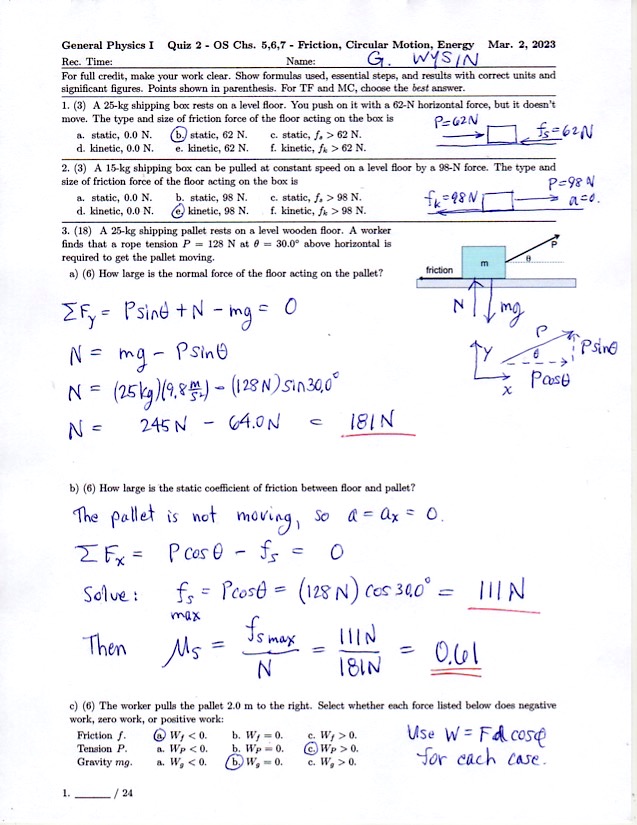 General Physics I Quiz 2 - OS Chs. 5,6,7 - Friction, Circular Motion, Energy Mar. 2, 2023
Rec. Time: Name: G. WYSIN
For full credit, make your work clear. Show formulas used, essential steps, and results with correct units and
significant figures. Points shown in parenthesis. For TF and MC, choose the best answer.
1. (3) A 25-kg shipping box rests on a level floor. You push on it with a 62-N horizontal force, but it doesn't
move. The type and size of friction force of the floor acting on the box is
P=62N
fs=62N
a. static, 0.0 N. b. static, 62 N. c. static, fs > 62 N.
d. kinetic, 0.0 N. e. kinetic, 62 N. f. kinetic, fk > 62 N.
2. (3) A 15-kg shipping box can be pulled at constant speed on a level floor by a 98-N force. The type and
size of friction force of the floor acting on the box is
P=98 N
fk=98N
a=0.
a. static, 0.0 N. b. static, 98 N. c. static, fs > 98 N.
d. kinetic, 0.0 N. e. kinetic, 98 N. f. kinetic, fk > 98 N.
3. (18) A 25-kg shipping pallet rests on a level wooden floor. A worker
finds that a rope tension P = 128 N at θ = 30.0° above horizontal is
required to get the pallet moving.
a) (6) How large is the normal force of the floor acting on the pallet?
P
θ
m
friction
N mg
ΣFy = Psinθ + N - mg = 0
N = mg - Psinθ
N = (25kg)(9.8 m/s²) - (128N) sin30.0°
N = 245N - 64.0N = 181N
P
y
θ
Psinθ
x
Pcosθ
b) (6) How large is the static coefficient of friction between floor and pallet?
The pallet is not moving, so a = ax = 0.
ΣFx = Pcosθ - fs = 0
Solve: fs max = Pcosθ = (128N) cos 30.0° = 111N
Then μs = fs max / N = 111N / 181N = 0.61
c) (6) The worker pulls the pallet 2.0 m to the right. Select whether each force listed below does negative
work, zero work, or positive work:
Friction f. a. Wf < 0. b. Wf = 0. c. Wf > 0.
Tension P. a. WP < 0. b. WP = 0. c. WP > 0.
Gravity mg. a. Wg < 0. b. Wg = 0. c. Wg > 0.
Use W = Fd cosφ
for each case.
1. ______ / 24